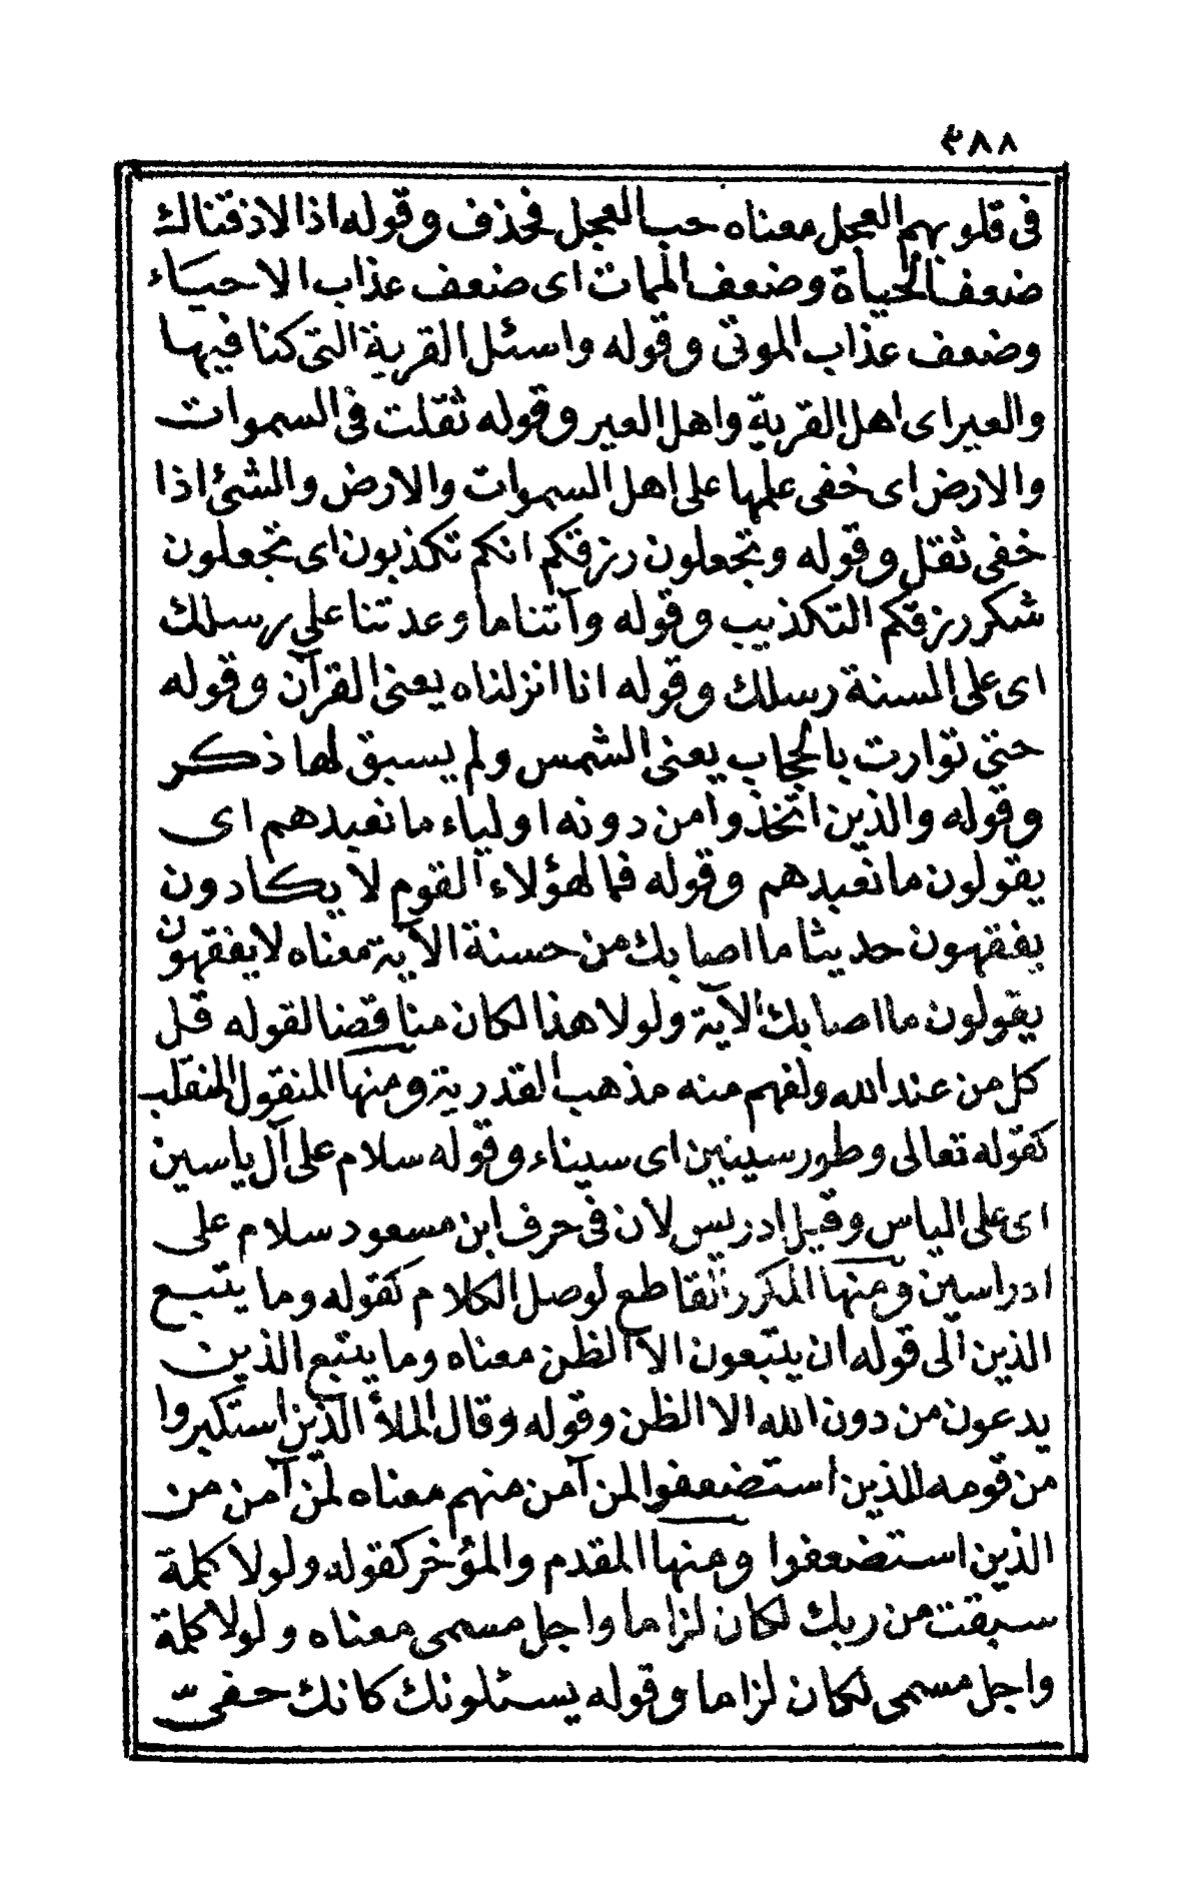 ٤٨٨
فى قلوبهم العجل معناه حب العجل فحذف وقوله اذا لاذقناك
ضعف الحياة وضعف الممات اى ضعف عذاب الاحياء
وضعف عذاب الموتى وقوله واسئل القرية التى كنا فيها
والعير اى اهل القرية واهل العير وقوله ثقلت فى السموات
والارض اى خفى علمها على اهل السموات والارض والشئ اذا
خفى ثقل وقوله وتجعلون رزقكم انكم تكذبون اى تجعلون
شكر رزقكم التكذيب وقوله وآتنا ما وعدتنا على رسلك
اى على السنة رسلك وقوله انا انزلناه يعنى القرآن وقوله
حتى توارت بالحجاب يعنى الشمس ولم يسبق لها ذكر
وقوله والذين اتخذوا من دونه اولياء ما نعبدهم اى
يقولون ما نعبدهم وقوله فمال هؤلاء القوم لا يكادون
يفقهون حديثا ما اصابك من حسنة الآية معناه لا يفقهون
يقولون ما اصابك الآية ولولا هذا لكان مناقضا لقوله قل
كل من عند الله ولفهم منه مذهب القدرية ومنها المنقول المنقلب
كقوله تعالى وطور سينين اى سيناء وقوله سلام على آل ياسين
اى على الياس وقيل ادريس لان فى حرف ابن مسعود سلام على
ادراسين ومنها المكرر القاطع لوصل الكلام كقوله وما يتبع
الذين الى قوله ان يتبعون الا الظن معناه وما يتبع الذين
يدعون من دون الله الا الظن وقوله وقال الملأ الذين استكبروا
من قومه للذين استضعفوا لمن آمن منهم معناه لمن آمن من
الذين استضعفوا ومنها المقدم والمؤخر كقوله ولولا كلمة
سبقت من ربك لكان لزاما واجل مسمى معناه ولولا كلمة
واجل مسمى لكان لزاما وقوله يسئلونك كانك حفىّ